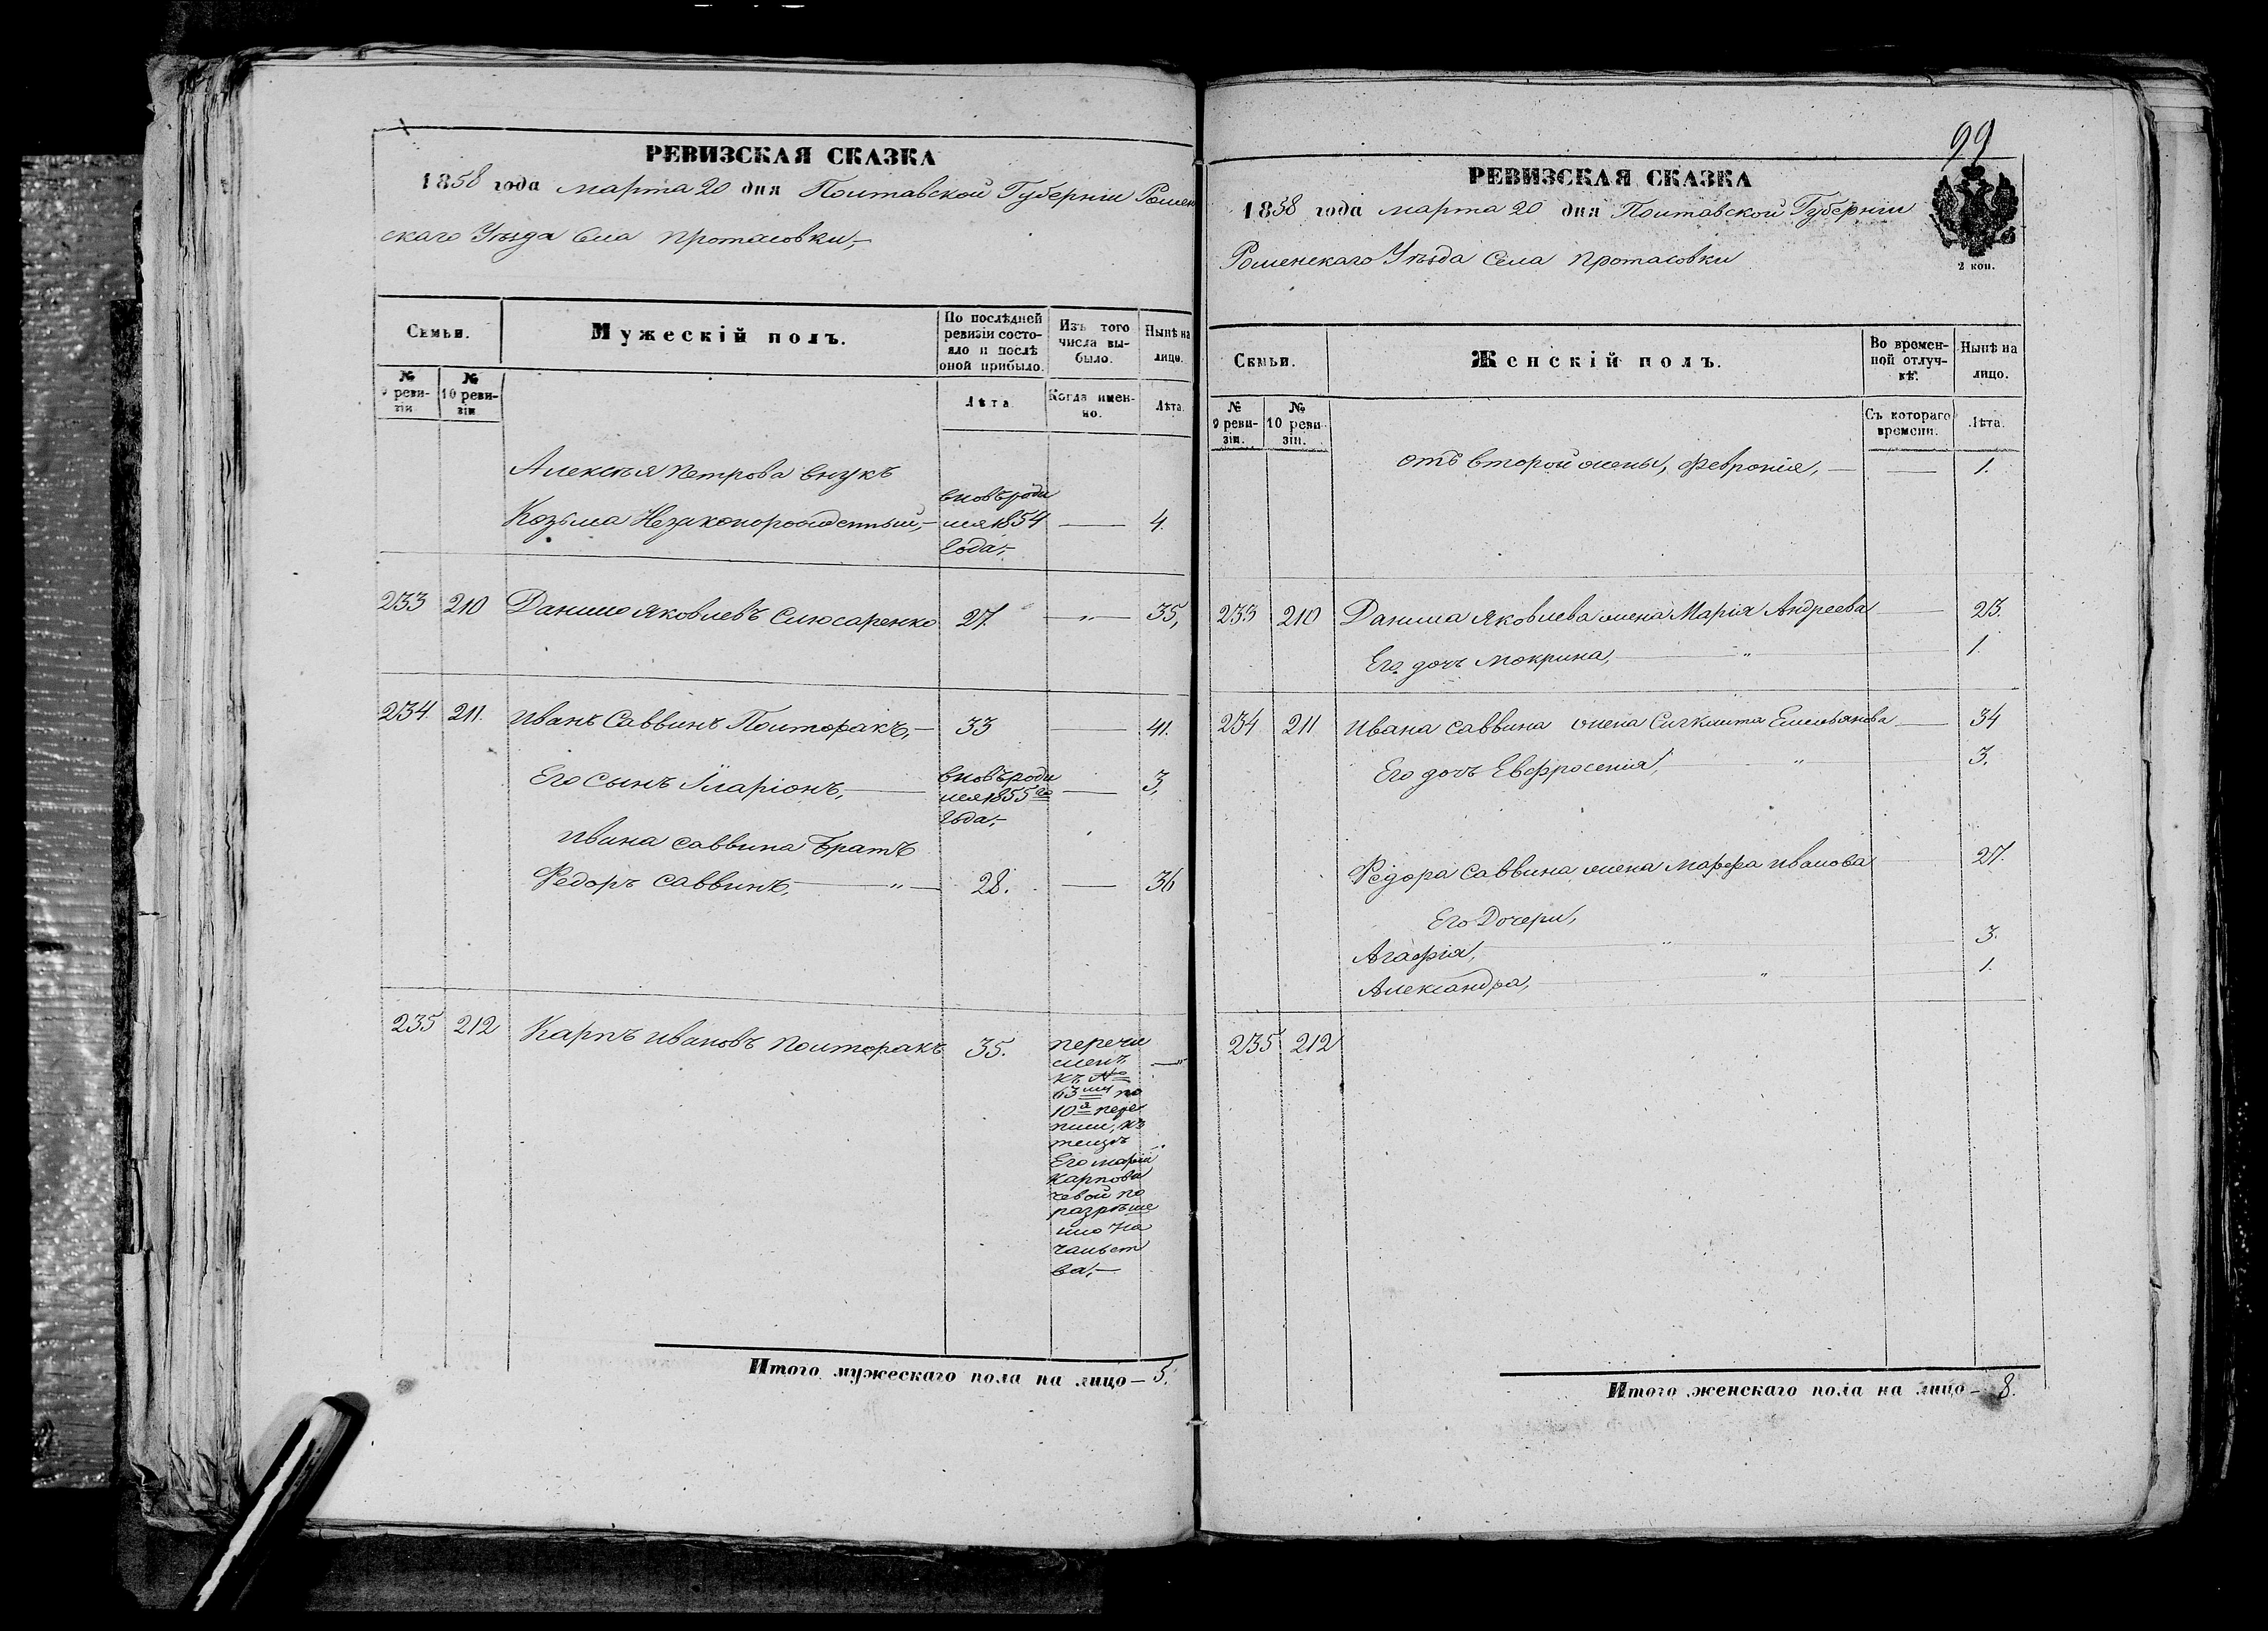 РЕВИЗСКАЯ СКАЗКА
1858 года марта 20 дня Полтавской Губерніи Ромен
скаго Уѣзда Села Протасовки,—
Семьи.
Мужескій полъ.
По послѣдней ревизіи состояло и послѣ оной прибыло.
Изъ того числа выбыло.
Нынѣ на лицо.
№ 9 ревизіи.
№ 10 ревизіи.
Лѣта
Когда именно.
Лѣта.
Алексѣя Петрова внукъ
Козьма Незаконорожденный,— вновь роди
лся 1854 — 4.
года,—
233 210 Данило Яковлевъ Слюсаренко 27. —„— 35,
234. 211. Иванъ Саввинъ Полторакъ,— 33 — 41.
Его сынъ Иларіонъ,— вновь роди
лся 1855го — 3,
года,—
Ивана Саввина Братъ
Федоръ Саввинъ,—„— 28. — 36
235 212 Карпъ Ивановъ Полторакъ 35. перечи
сленъ —„
къ №
63му по
10й пере
писи, къ
Его Маріи
Карпови
чевой по
разрѣше
нію На
чальст
ва,—
Итого мужескаго пола на лицо — 5.
99
РЕВИЗСКАЯ СКАЗКА
1858 года марта 20 дня Полтавской Губерніи
Роменскаго Уѣзда Села Протасовки
2 коп.
Семьи.
Женскій полъ.
Во временной отлучкѣ.
Нынѣ на лицо.
№ 9 ревизіи.
№ 10 ревизіи.
Съ котораго времени.
Лѣта.
отъ второй жены, Февронія,— — 1.
233 210 Данила Яковлева жена Марія Андреева — 23.
Его дочь Мокрина,—„— 1.
234 211 Ивана Саввина жена Емельянова — 34
Его дочь Евфросенія,—„— 3.
Федора Саввина жена Марфа Иванова — 27.
Его Дочери,
Агафія,—„— 3.
Александра,—„— 1.
235 212
Итого женскаго пола на лицо — 8.